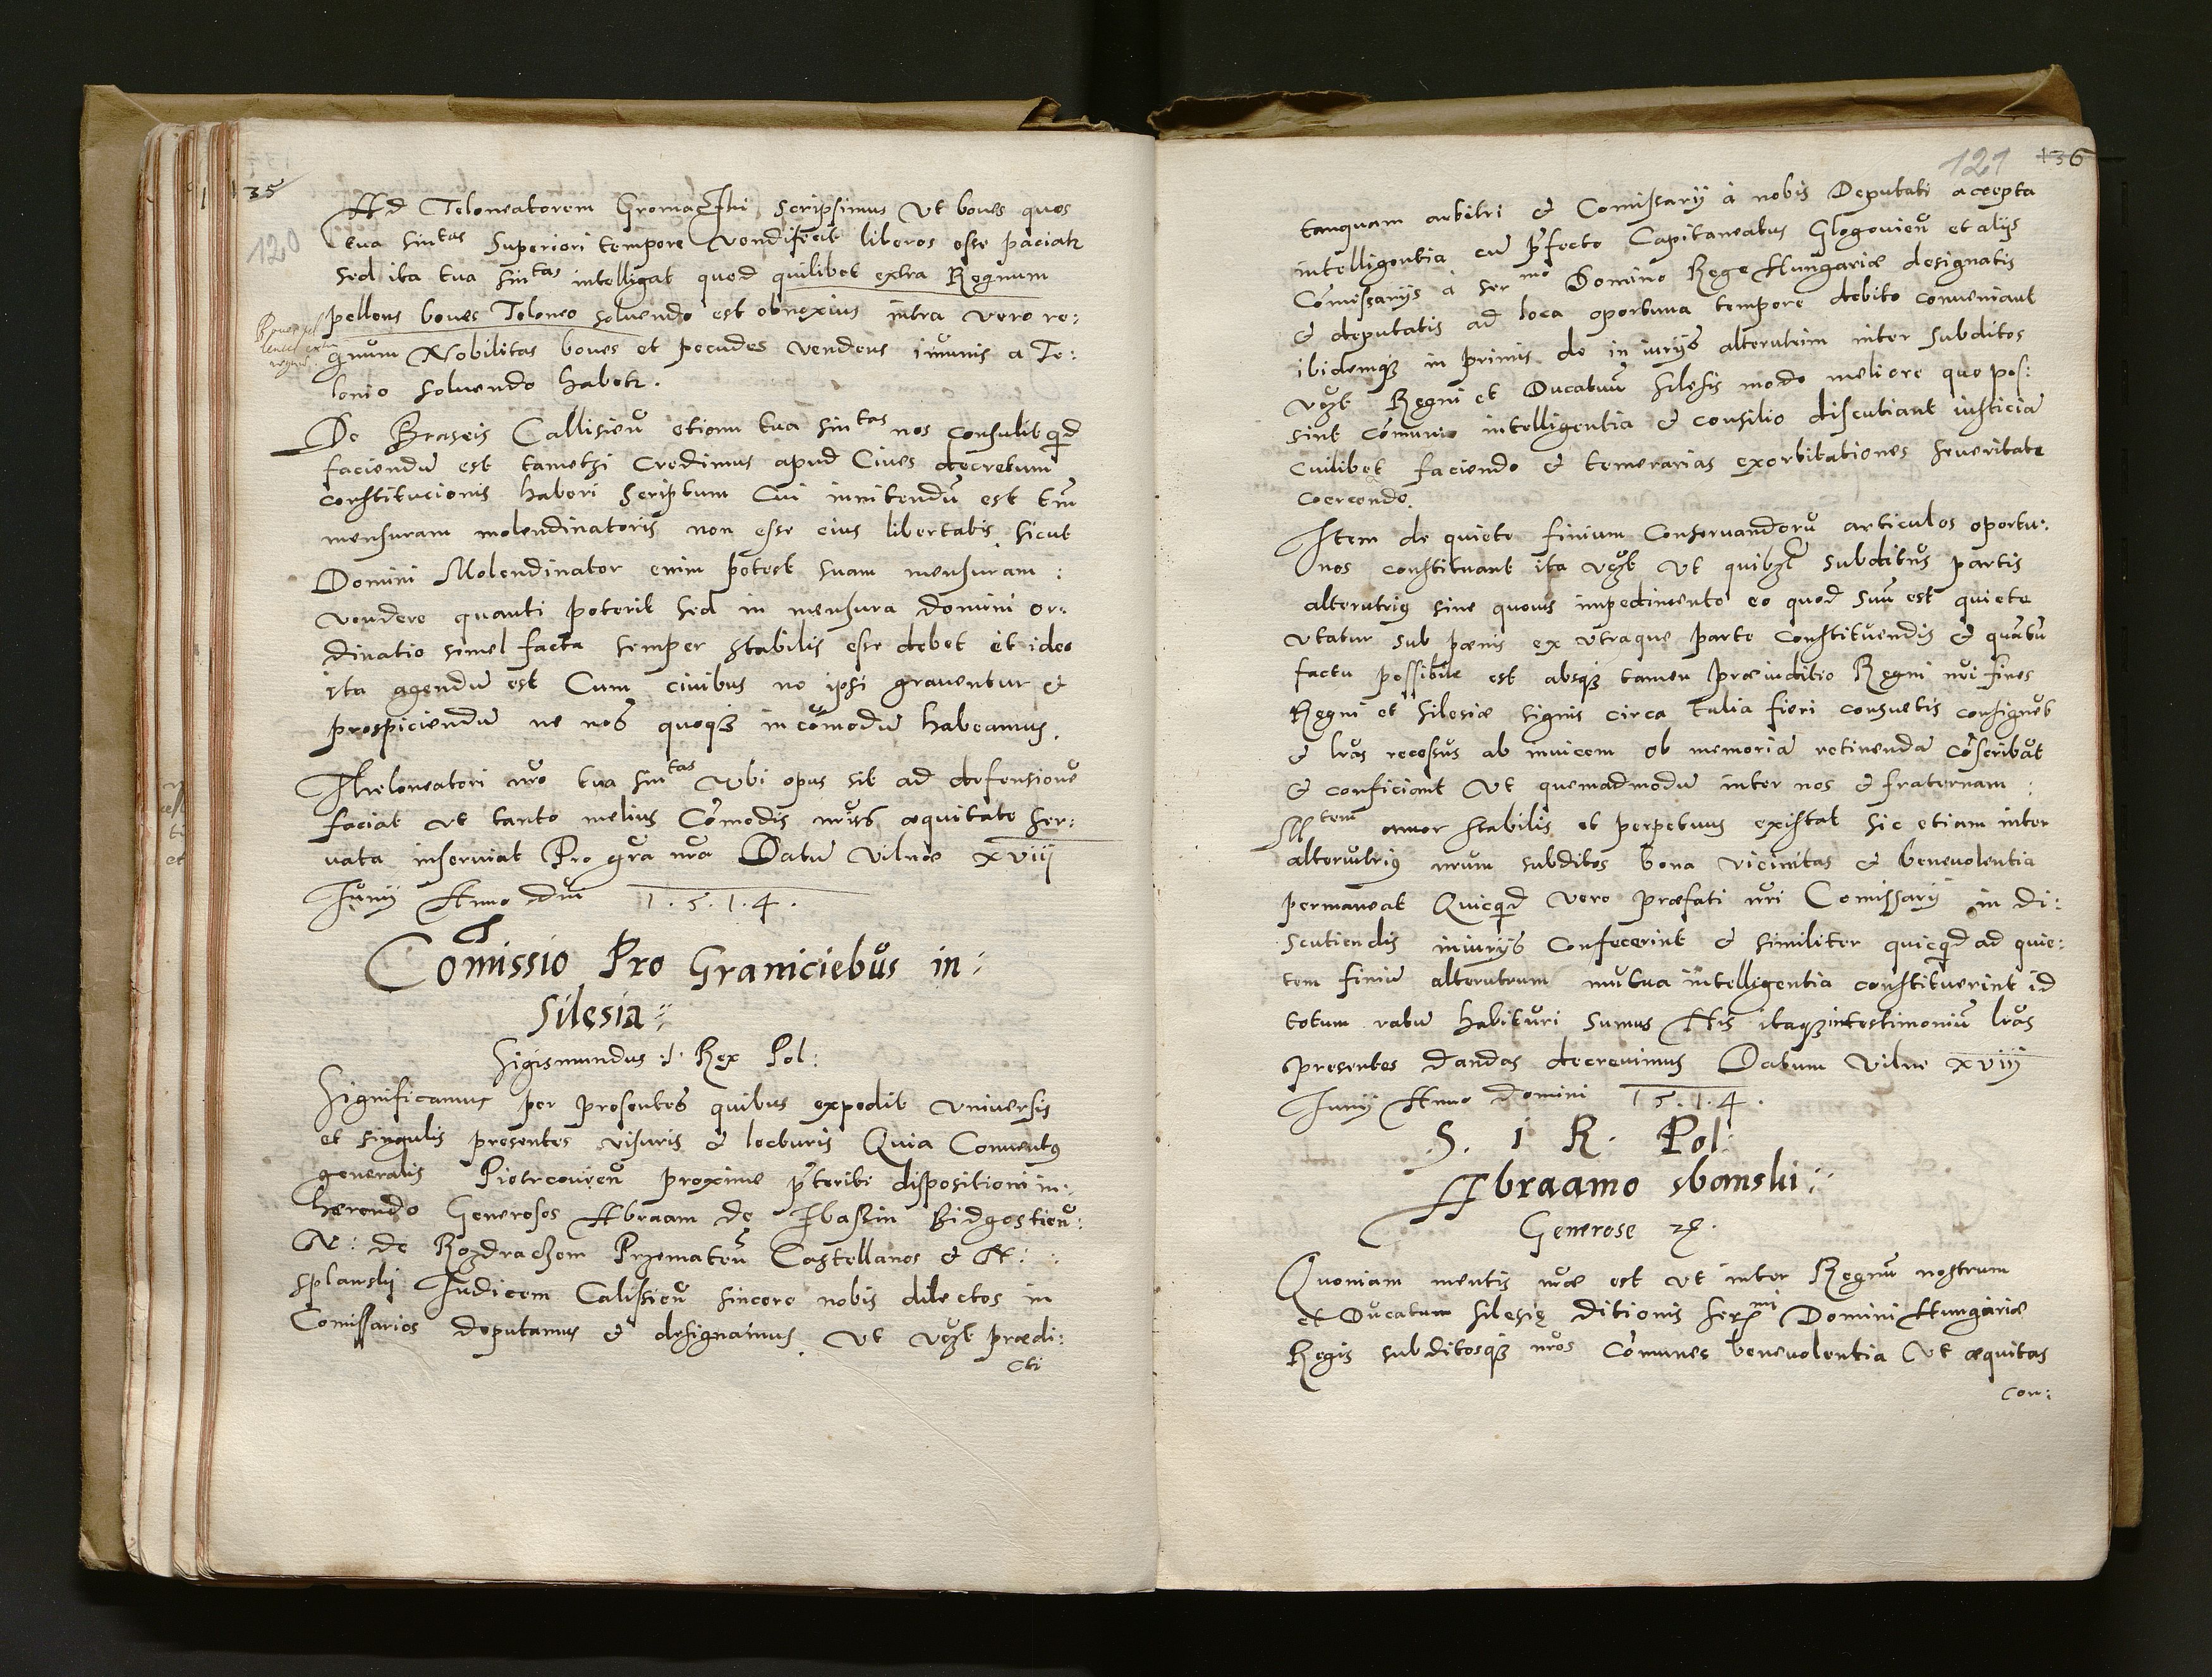 135
120
Ad Teloneatorem Gromaczki scripsimus Vt boues quos
tua sin^tas Superiori tempore vendiderit liberos esse paciatr
sed ita tua sin^tas intelligat quod quilibet extra Regnum
pellens boues Teloneo soluendo est obnoxius intra vero re:
gnum Nobilitas boues et pecudes vendens imunis a Te:
lonio soluendo habetr.
De Braseis Callisieñ etiam tua sin^tas nos consulit qid
faciendũ est tametsi credimus apud Ciues decretum
constitucionis haberi scriptum Cui innitendũ est tm̃
mensuram molendinatoris non esse eius libertatis sicut
Domini Molendinator enim potest suam mensuram :
vendere quanti poterit sed in mensura domini or:
dinatio semel facta semper stabilis esse debet et ideo
ita agendũ est Cum ciuibus ne ipsi grauentur &
prospiciendũ ne nos quoqȝ incõmodũ habeamus.
Theloneatori nro tua sin^tas vbi opus sit ad defensionẽ
faciat vt tanto melius Cõmodis nris æquitate ser:
uata inseruiat Pro gra nra Datũ Vilnæ xviij
Junij Anno dni 1.5.1.4.
Comissio Pro Graniciebus in:
Silesia:
Sigismundus .1. Rex Pol:
Significamus per presentes quibus expedit vniuersis
et singulis presentes visuris & lecturis Quia Conuentus
generalis Piotrcouieñ proxime pteriti dispositioni in:
hærendo Generosos Abraam de Sbaszin Bidgostieñ:
N: de Rozdrazem Przemateñ Castellanos & N: :
splawski Judicem Calissieñ sincere nobis dilectos in
Comissarios deputamus & designamus. Vt vȝt prædi:
cti
121 136
tanquam arbitri & Comissarij à nobis Deputati accepta
intelligentia cũ pfecto Capitaneatus Glogouieñ et alijs
Cõmissarijs à ser^mo Domino Rege Hungariæ designatis
& deputatis ad loca oportuna tempore debito conueniant
ibidemqȝ in primis de iniurijs alterutrim inter subditos
vȝt Regni et Ducatuũ Silesiæ modo meliore quo pos:
sint cõmuni intelligentia & consilio discutiant iusticiã
cuilibet faciendo & temerarias exorbitationes seueritate
coercendo.
Item de quiete finium Conseruandorũ articulos oportu:
nos constituant ita vȝt vt quibȝt subditus partis
alterutrius sine quouis impedimento eo quod suũ est quiete
vtatur sub pænis ex vtraque parte constituendis & quãtũ
factu possibile est absqȝ tamen præiuditio Regni nri fines
Regni et Silesiæ signis circa talia fieri consuetis consignẽt
& lras recessus ab inuicem ob memoriã retinendã cõscribãt
& conficiant Vt quemadmodũ inter nos & fraternam :
M^tem amor stabilis et perpetuus existat sic etiam inter
alterutrius nrum subditos bona vicinitas & beneuolentia
permaneat Quicqid vero præfati nri Comissarij in di:
scutiendis iniurijs Confecerint & similiter quicqid ad quie:
tem finiũ alterutrum mutua intelligentia constituerint id
totum ratũ habituri sumus His itaqȝ in testimoniũ lras
presentes dandas decreuimus Datum Vilne xviij
Junij Anno domini 1.5.1.4.
S. 1 R. Pol:
Abraamo sbanski:
Generose &c.
Quoniam mentis nræ est vt inter Regnũ nostrum
et Ducatum Silesię ditionis ser^mi Domini Hungariæ
Regis subditosqȝ nros Cõmunes beneuolentia Vt æquitas
con: